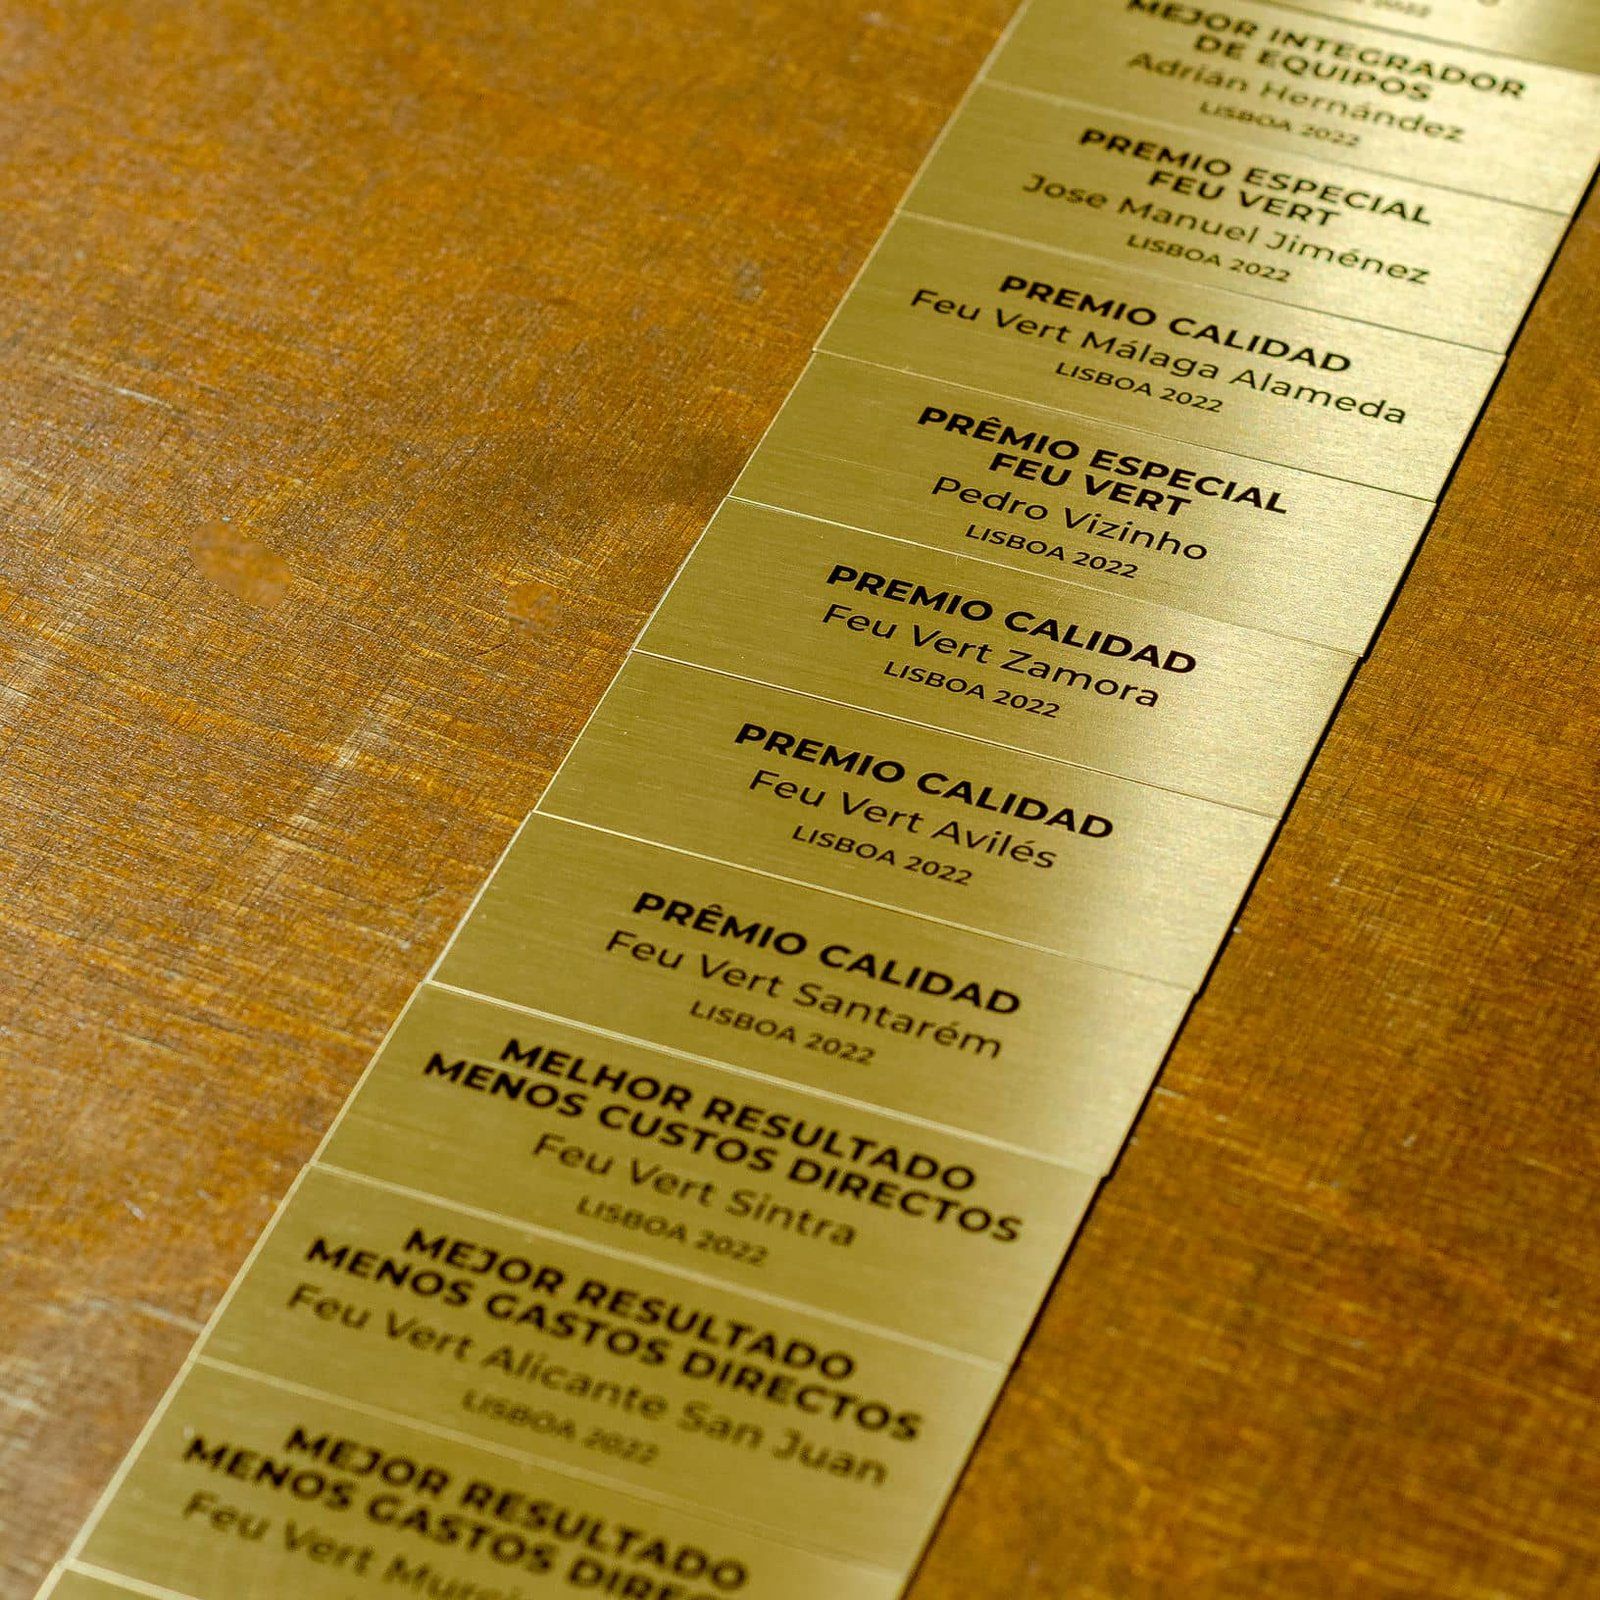 2022
MEJOR INTEGRADOR
DE EQUIPOS
Adrián Hernández
LISBOA 2022
PREMIO ESPECIAL
FEU VERT
Jose Manuel Jiménez
LISBOA 2022
PREMIO CALIDAD
Feu Vert Málaga Alameda
LISBOA 2022
PRÊMIO ESPECIAL
FEU VERT
Pedro Vizinho
LISBOA 2022
PREMIO CALIDAD
Feu Vert Zamora
LISBOA 2022
PREMIO CALIDAD
Feu Vert Avilés
LISBOA 2022
PRÊMIO CALIDAD
Feu Vert Santarém
LISBOA 2022
MELHOR RESULTADO
MENOS CUSTOS DIRECTOS
Feu Vert Sintra
LISBOA 2022
MEJOR RESULTADO
MENOS GASTOS DIRECTOS
Feu Vert Alicante San Juan
LISBOA 2022
MEJOR RESULTADO
MENOS GASTOS
Feu Vert